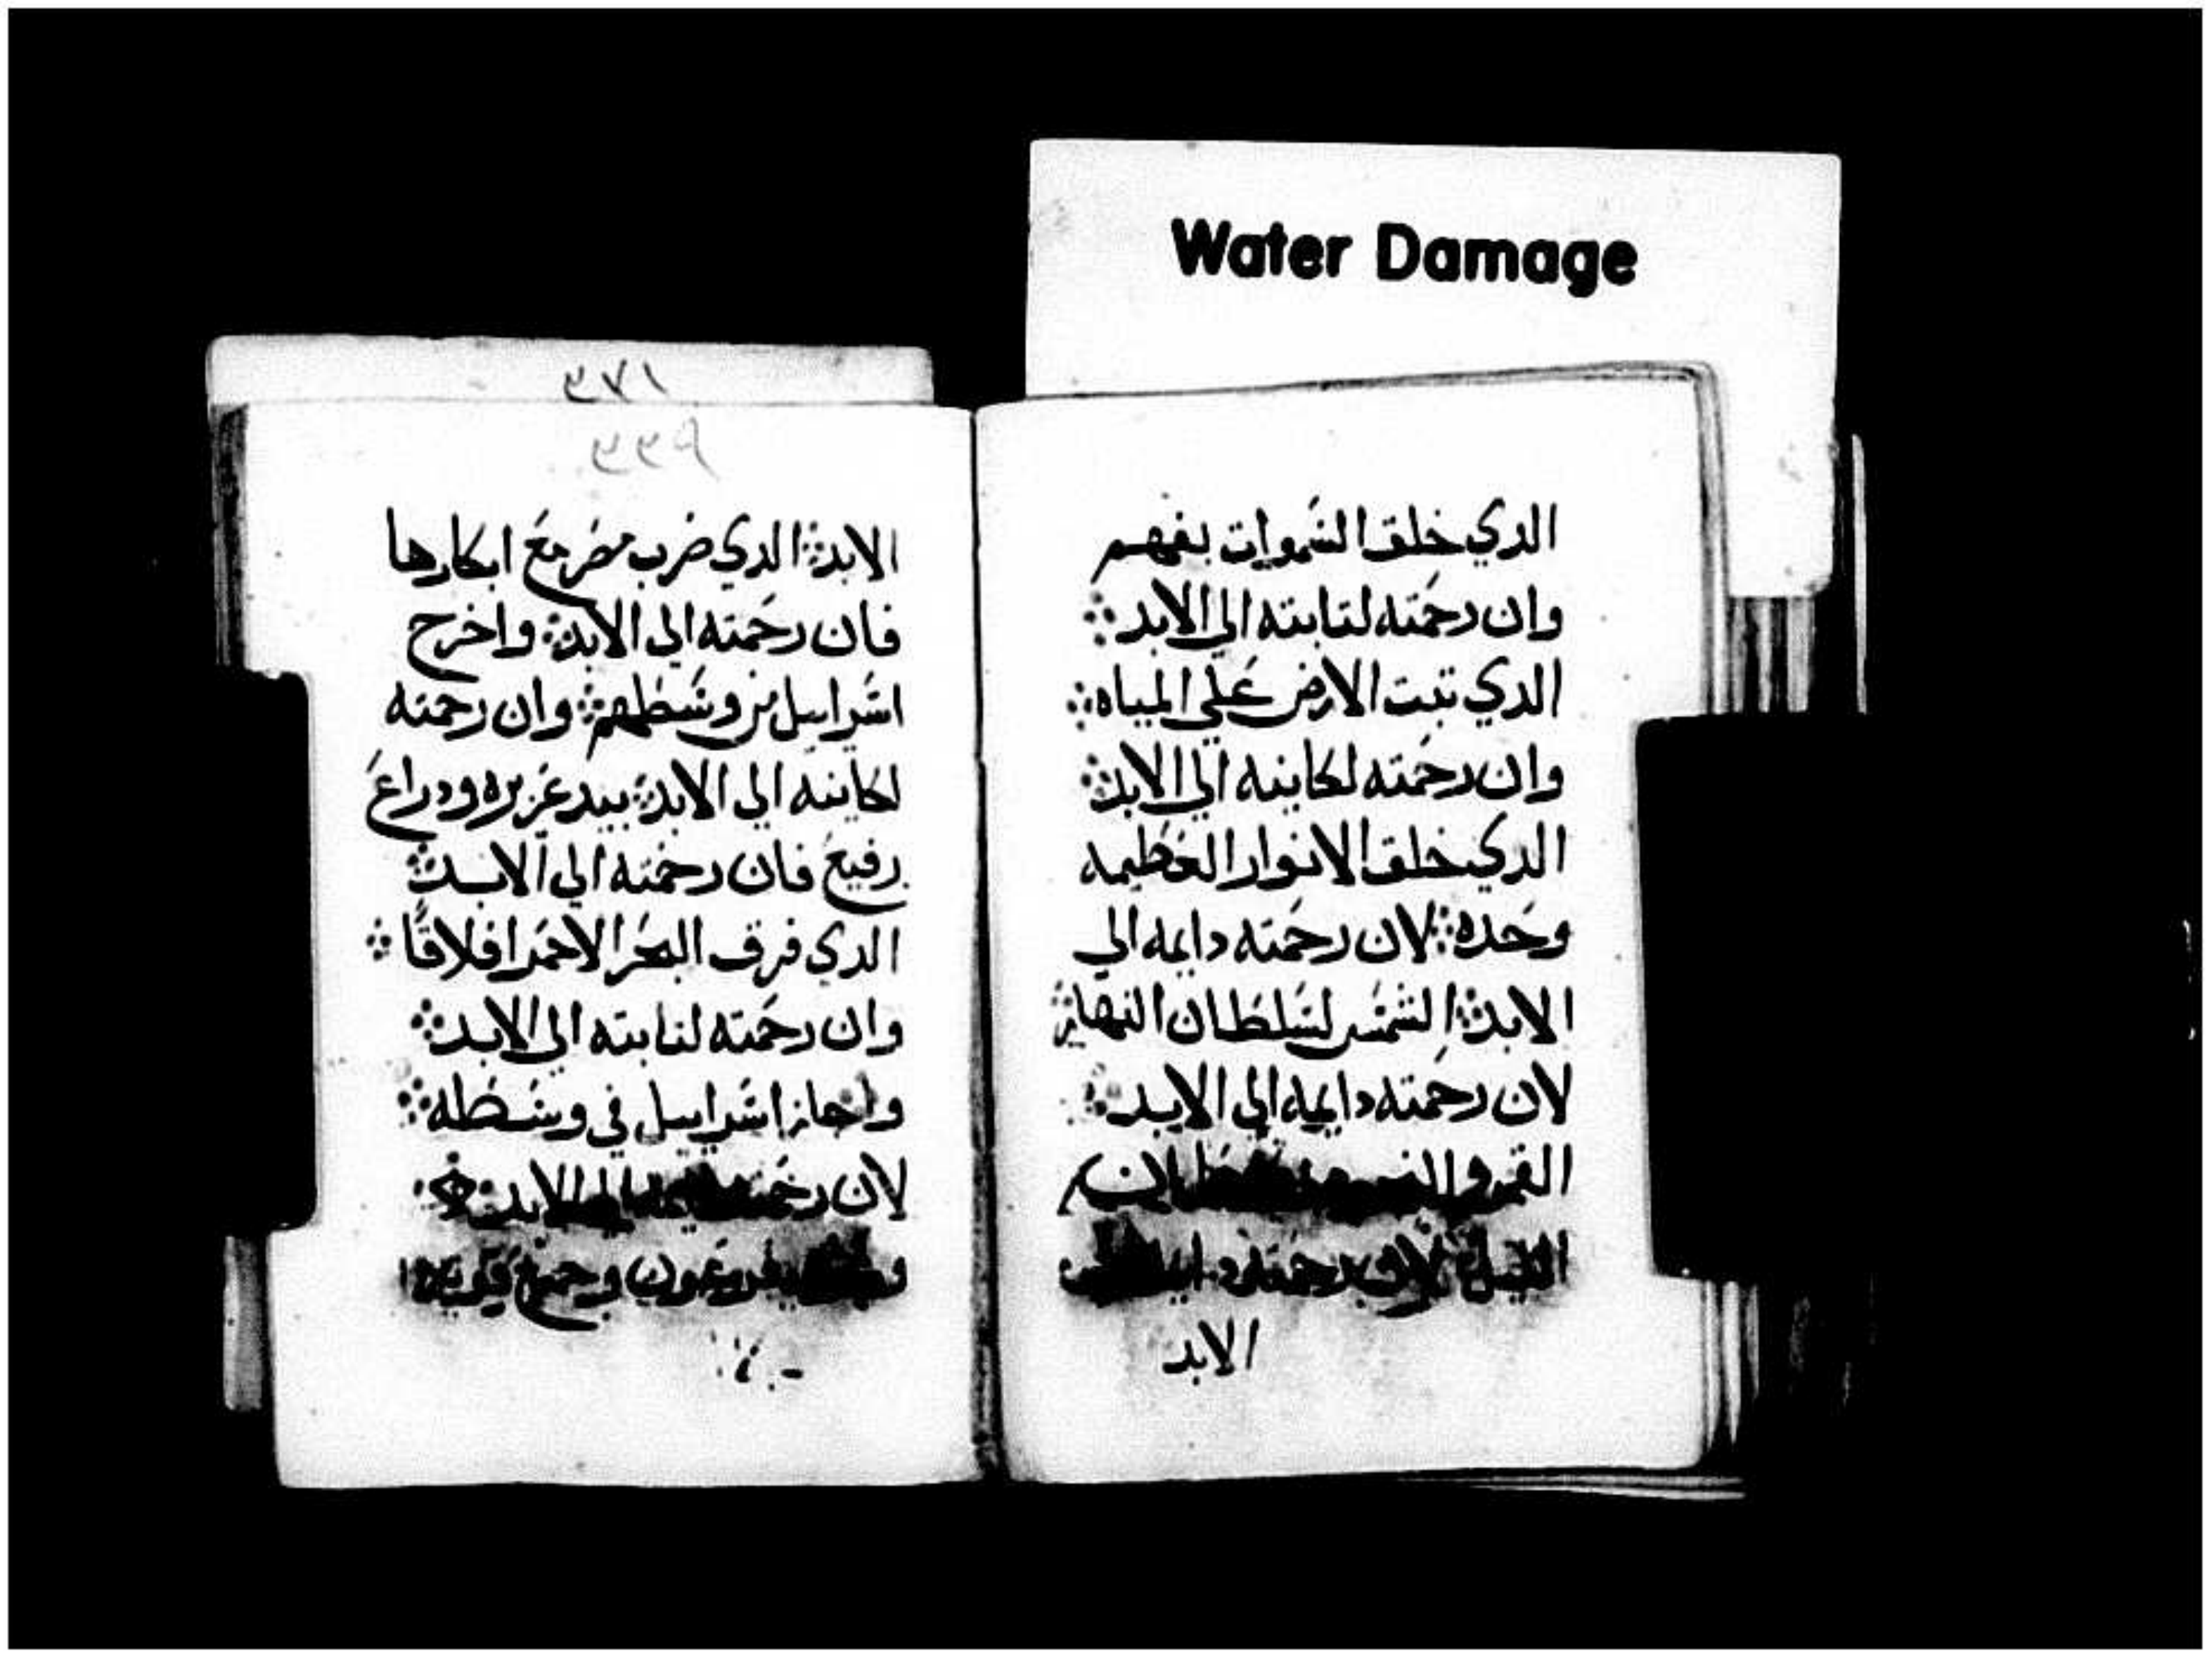 Water Damage
الدي خلق السموات بفهم
وان رحمته لتابته الي الابد
الدي تبت الارض علي المياه
وان رحمته لكاينه الي الابد
الدي خلق الانوار العظيمه
وحده لان رحمته دايمه الي
الابد الشمس لسلطان النهار
لان رحمته دايمه الي الابد
القمر و
الليل لان رحمته
الابد
٣٧١
٣٣٩
الابد الدي ضرب مصر مع ابكارها
فان رحمته الي الابد واخرج
اسراييل من وسطهم وان رحمته
لكاينه الي الابد بيد عزيزه ودراع
رفيع فان رحمته الي الابد
الدي فرق البحر الاحمر افلاقا
وان رحمته لتابته الي الابد
واجاز اسراييل في وسطه
لان رحمته الابد
فرعون وجميع قوته